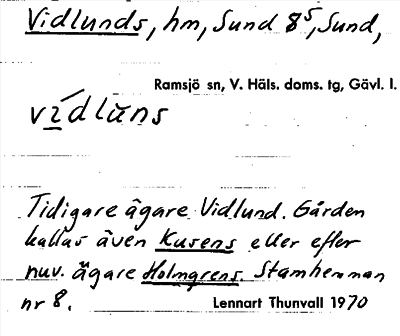 Vidlunds, hm, Sund 8⁵, Sund,
Ramsjö sn, V. Häls. doms. tg, Gävl. l.
vídlŭns
Tidigare ägare Vidlund. Gården
kallas även Kusens eller efter
nuv. ägare Holmgrens. Stamhemman
nr 8.
Lennart Thunvall 1970